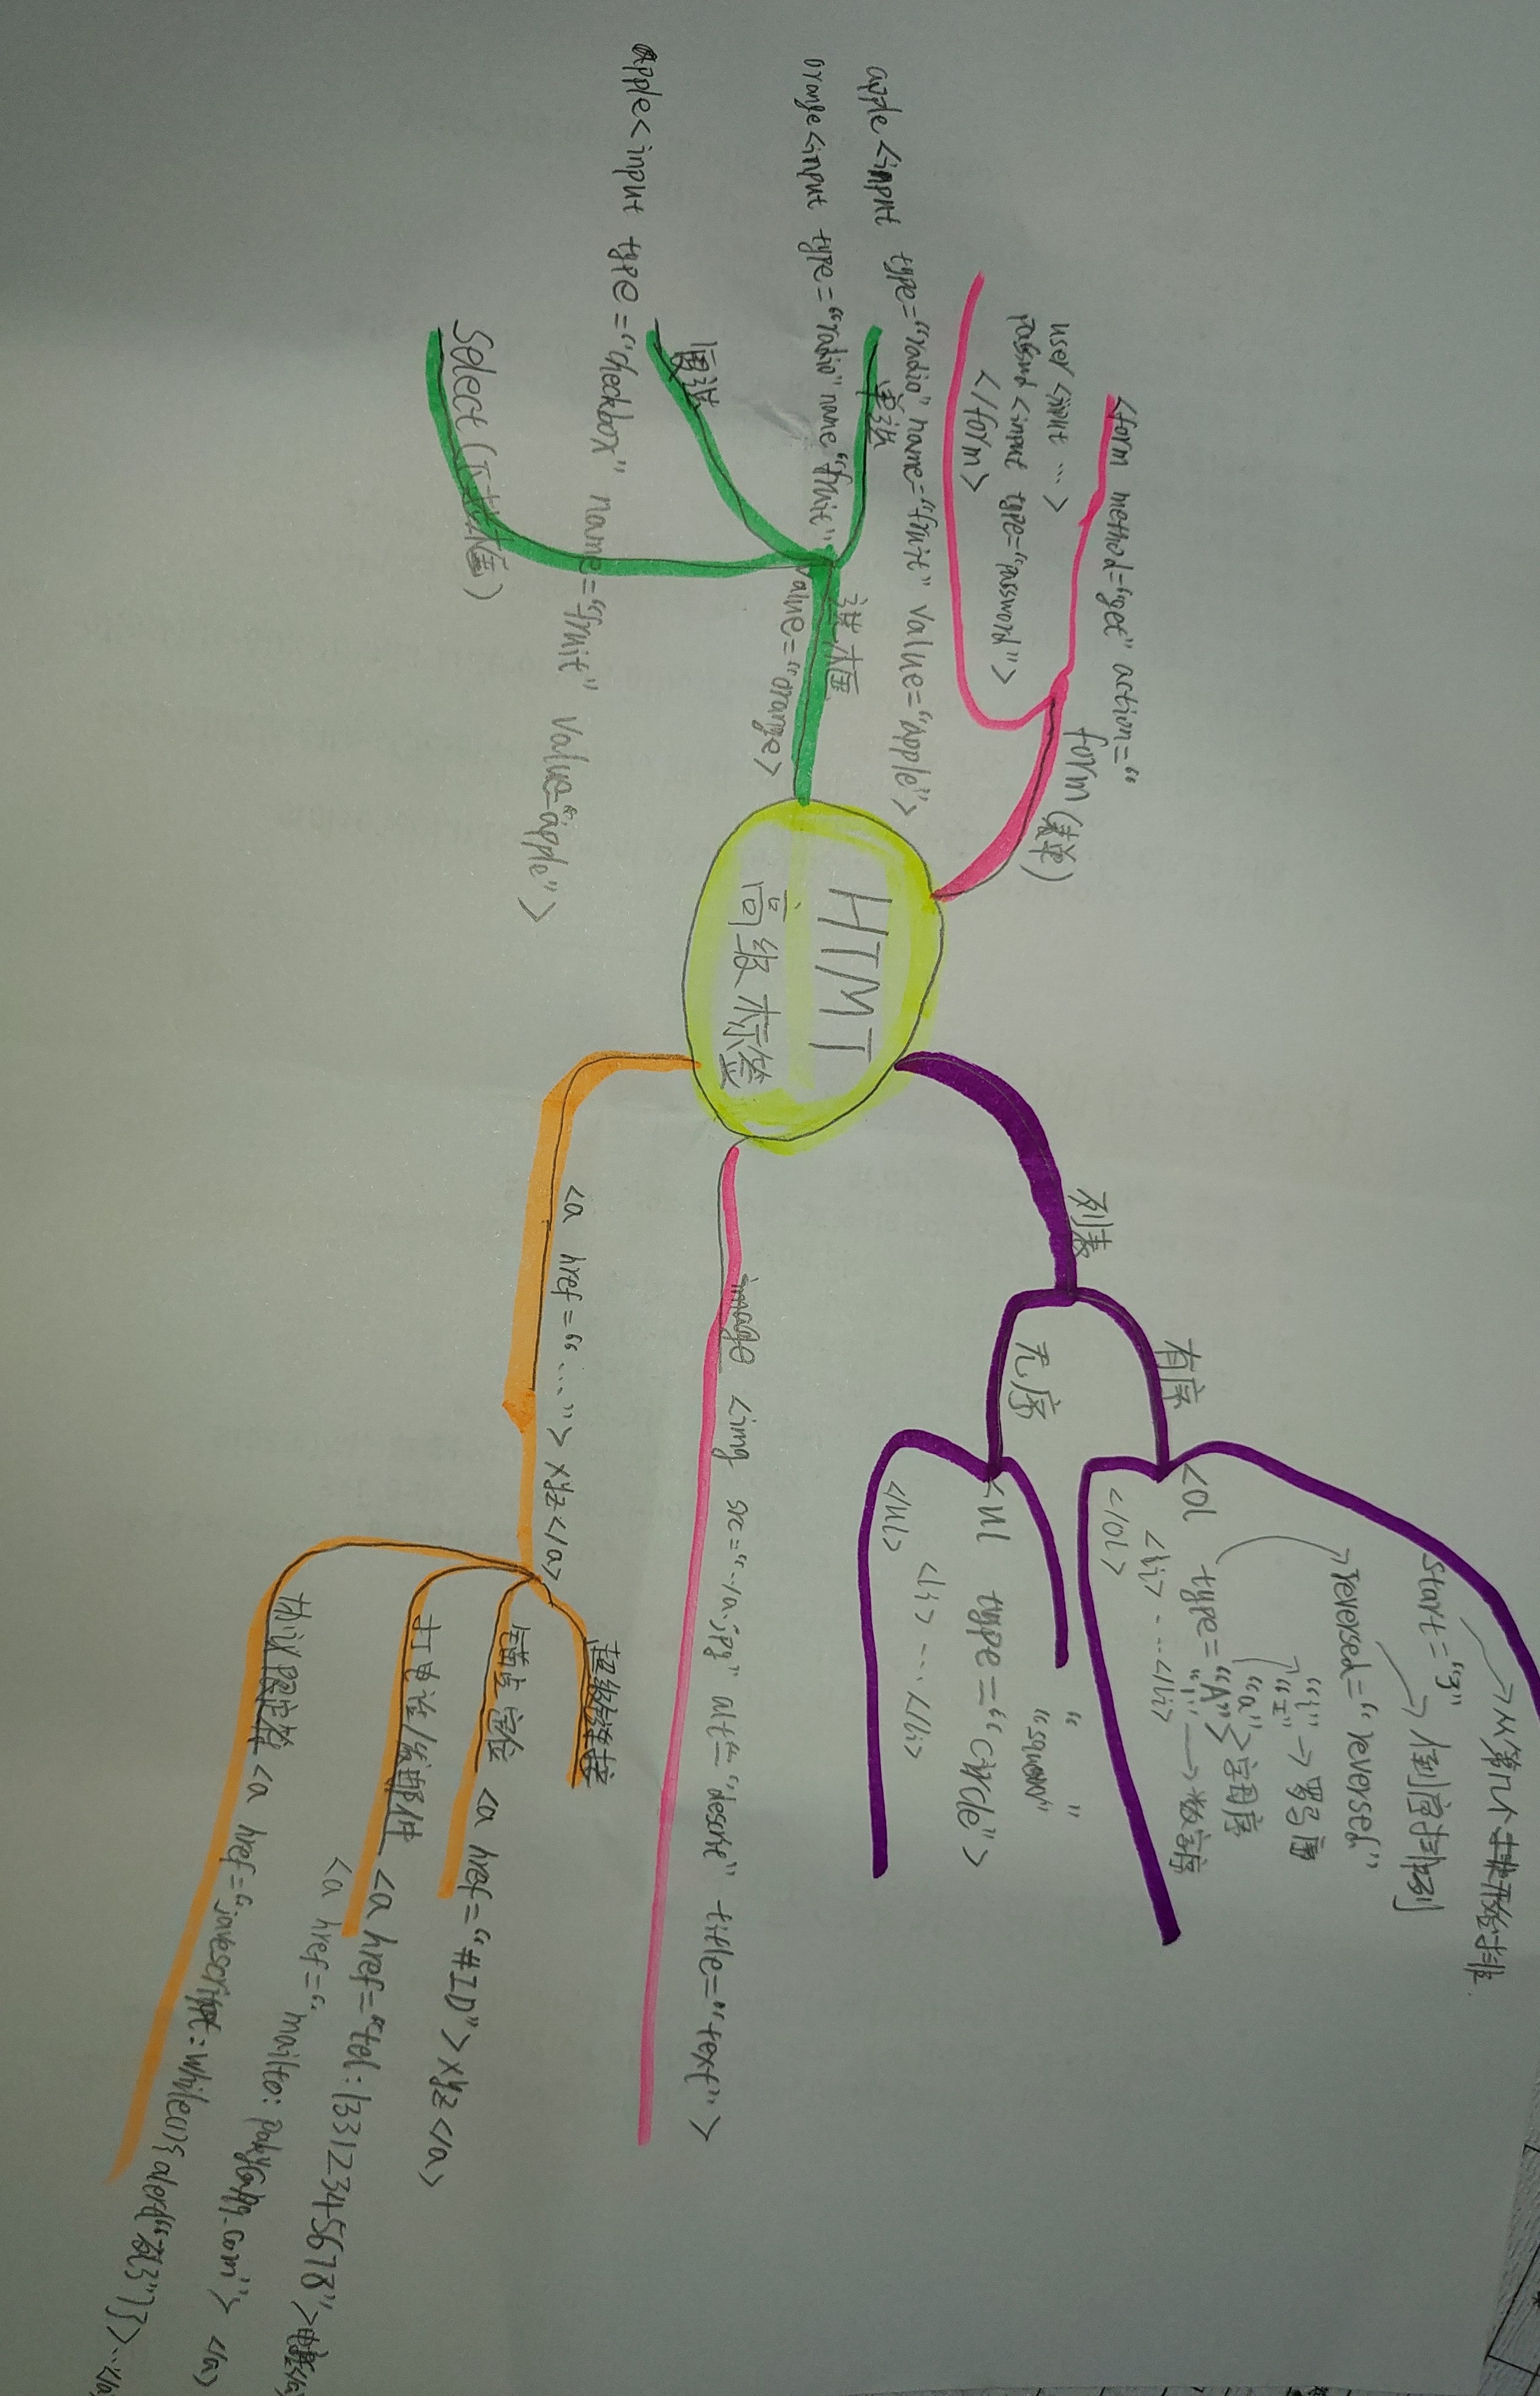 HTMT
高级标签
form (表单)
<form method="get" action="
user <input ... >
<input type="password">
</form>
选框
单选
apple <input type="radio" name="fruit" value="apple">
orange <input type="radio" name="fruit" value="orange>
复选
apple <input type="checkbox" name="fruit" value="apple">
Select (下拉框)
列表
有序
<ol
start="3"
从第几个开始排
reversed="reversed"
倒序排列
type="1"
数字序
"A"
"a"
字母序
"I"
"i"
罗马序
<li> ... </li>
</ol>
无序
<ul type="circle">
" "
<li> ... </li>
</ul>
image <img src="../a.jpg" alt="descrit" title="text">
<a href="....."> xyz </a>
超级链接
锚点定位 <a href="#ID"> xyz </a>
打电话/发邮件 <a href="tel:13312345678">
<a href="mailto: </a>
协议限定符 <a href="javescript:while(1){alert(